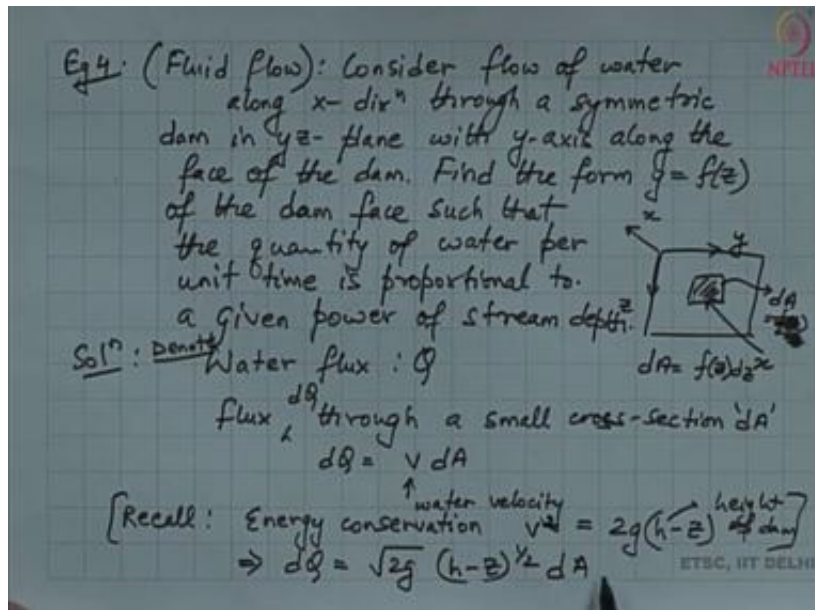 Eg 4. (Fluid flow): Consider flow of water
along x-dirⁿ through a symmetric
dam in yz-plane with y-axis along the
face of the dam. Find the form y = f(z)
of the dam face such that
the quantity of water per
unit time is proportional to.
a given power of stream depth.
x
y
z
dA
x
dA = f(z)dz
Solⁿ: Denote Water flux : Q
flux dQ through a small cross-section 'dA'
dQ = v dA
↑ water velocity
[Recall: Energy conservation v² = 2g(h-z) height of dam]
⇒ dQ = √2g (h-z)^1/2 dA
NPTEL
ETSC, IIT DELHI